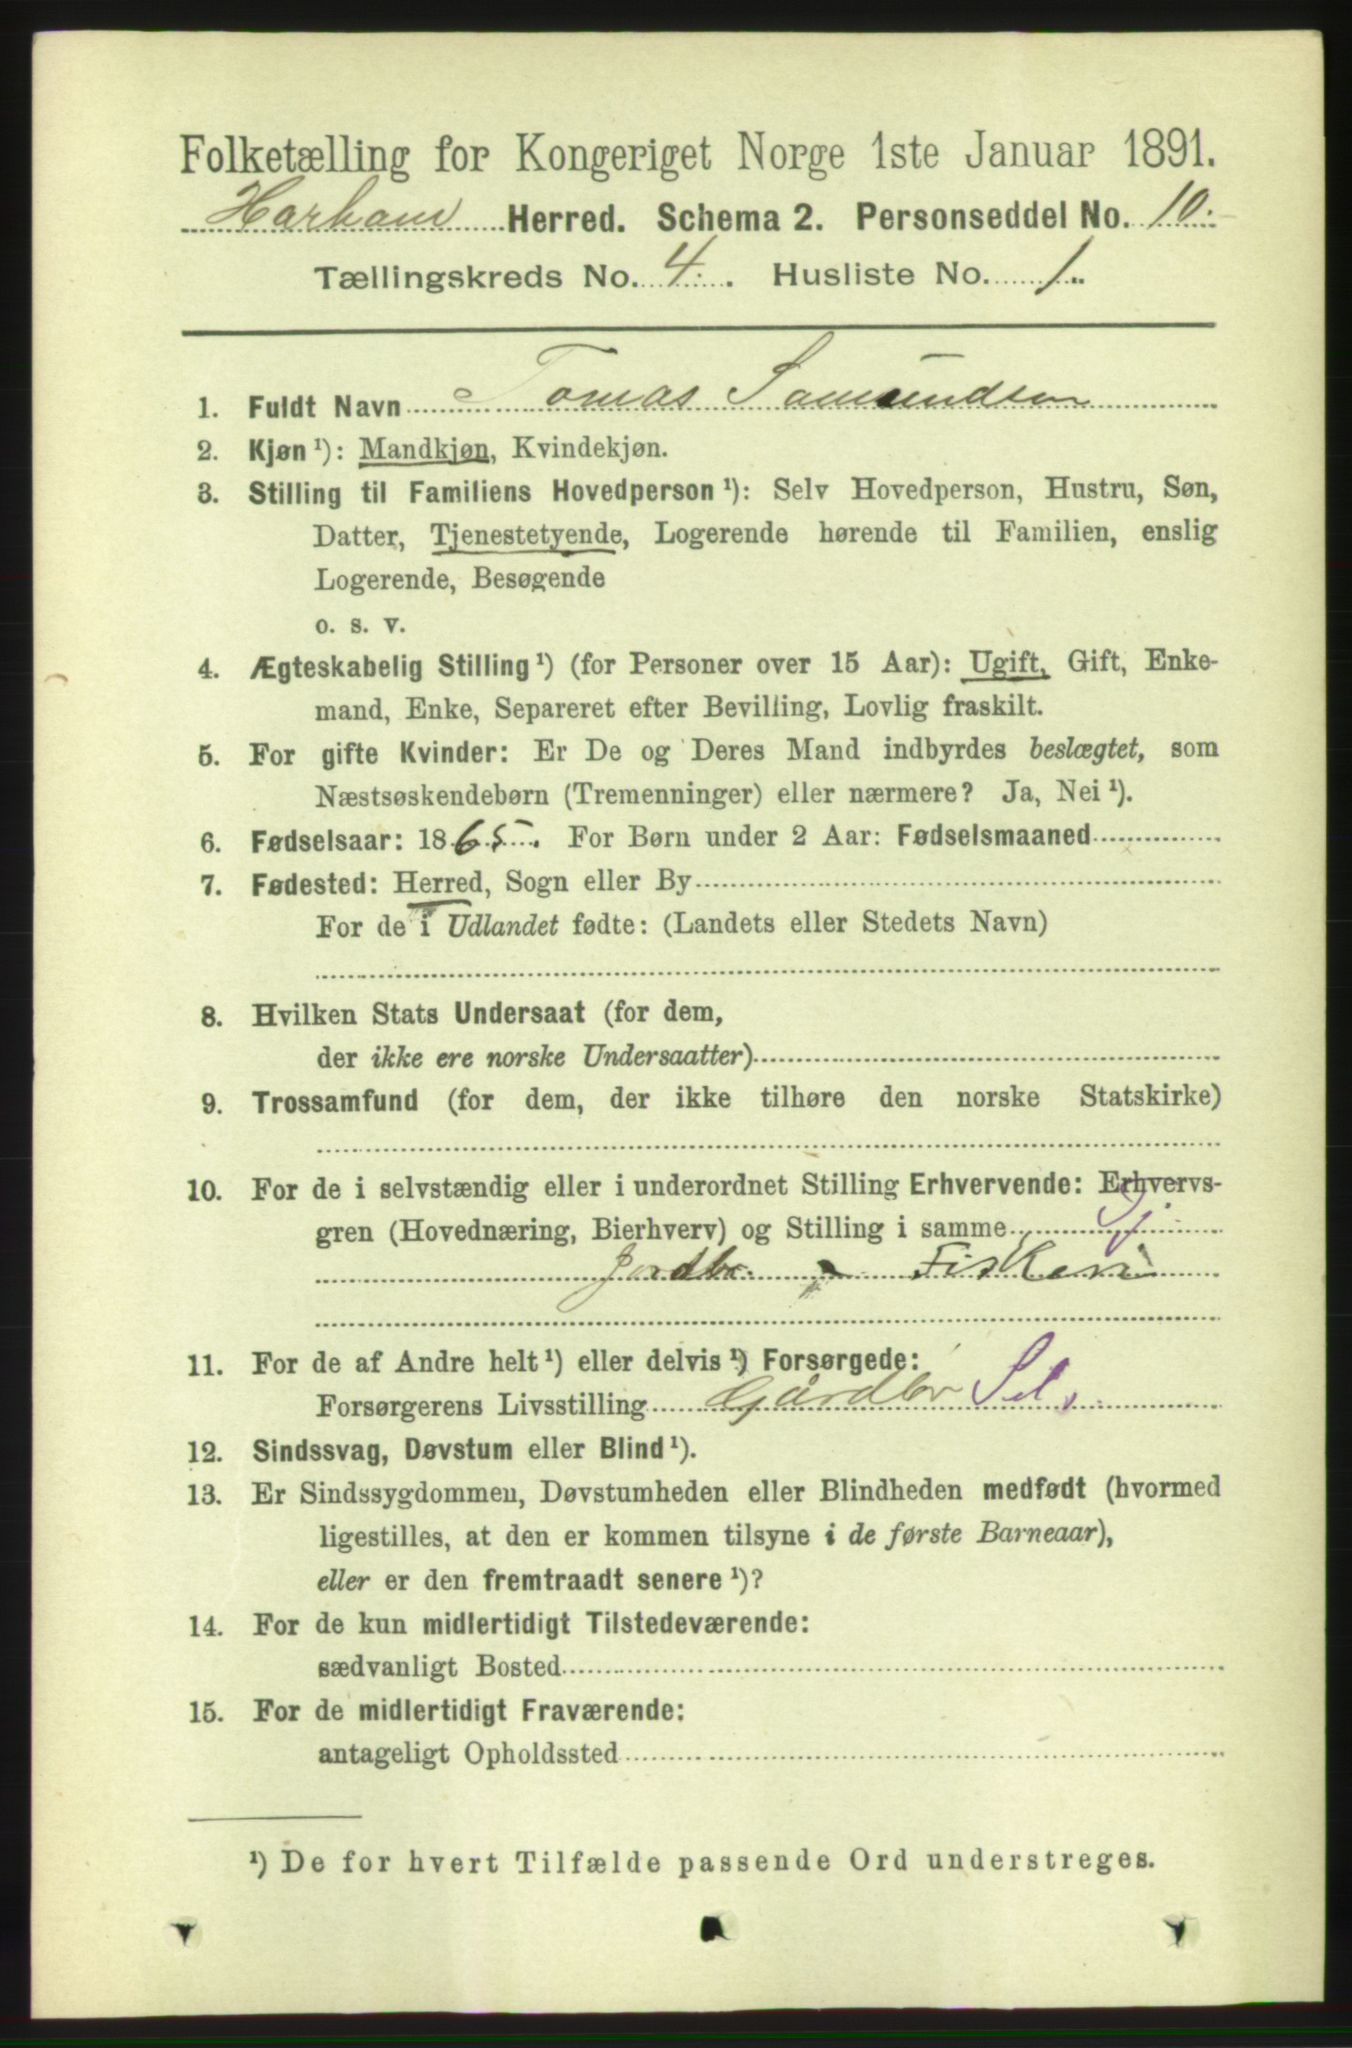 Folketælling for Kongeriget Norge 1ste Januar 1891.
Harham Herred. Schema 2. Personseddel No. 10.
Tællingskreds No. 4. Husliste No. 1.
1. Fuldt Navn Tomas Samundsen
2. Kjøn ¹): Mandkjøn, Kvindekjøn.
3. Stilling til Familiens Hovedperson ¹): Selv Hovedperson, Hustru, Søn,
Datter, Tjenestetyende, Logerende hørende til Familien, enslig
Logerende, Besøgende
o. s. v.
4. Ægteskabelig Stilling ¹) (for Personer over 15 Aar): Ugift, Gift, Enke-
mand, Enke, Separeret efter Bevilling, Lovlig fraskilt.
5. For gifte Kvinder: Er De og Deres Mand indbyrdes beslægtet, som
Næstsøskendebørn (Tremenninger) eller nærmere? Ja, Nei ¹).
6. Fødselsaar: 1865. For Børn under 2 Aar: Fødselsmaaned
7. Fødested: Herred, Sogn eller By
For de i Udlandet fødte: (Landets eller Stedets Navn)
8. Hvilken Stats Undersaat (for dem,
der ikke ere norske Undersaatter)
9. Trossamfund (for dem, der ikke tilhøre den norske Statskirke)
10. For de i selvstændig eller i underordnet Stilling Erhvervende: Erhvervs-
gren (Hovednæring, Bierhverv) og Stilling i samme
Jordbr. Fiskeri
11. For de af Andre helt ¹) eller delvis ¹) Forsørgede:
Forsørgerens Livsstilling Gårdbr Sels
12. Sindssvag, Døvstum eller Blind ¹).
13. Er Sindssygdommen, Døvstumheden eller Blindheden medfødt (hvormed
ligestilles, at den er kommen tilsyne i de første Barneaar),
eller er den fremtraadt senere ¹)?
14. For de kun midlertidigt Tilstedeværende:
sædvanligt Bosted
15. For de midlertidigt Fraværende:
antageligt Opholdssted
¹) De for hvert Tilfælde passende Ord understreges.